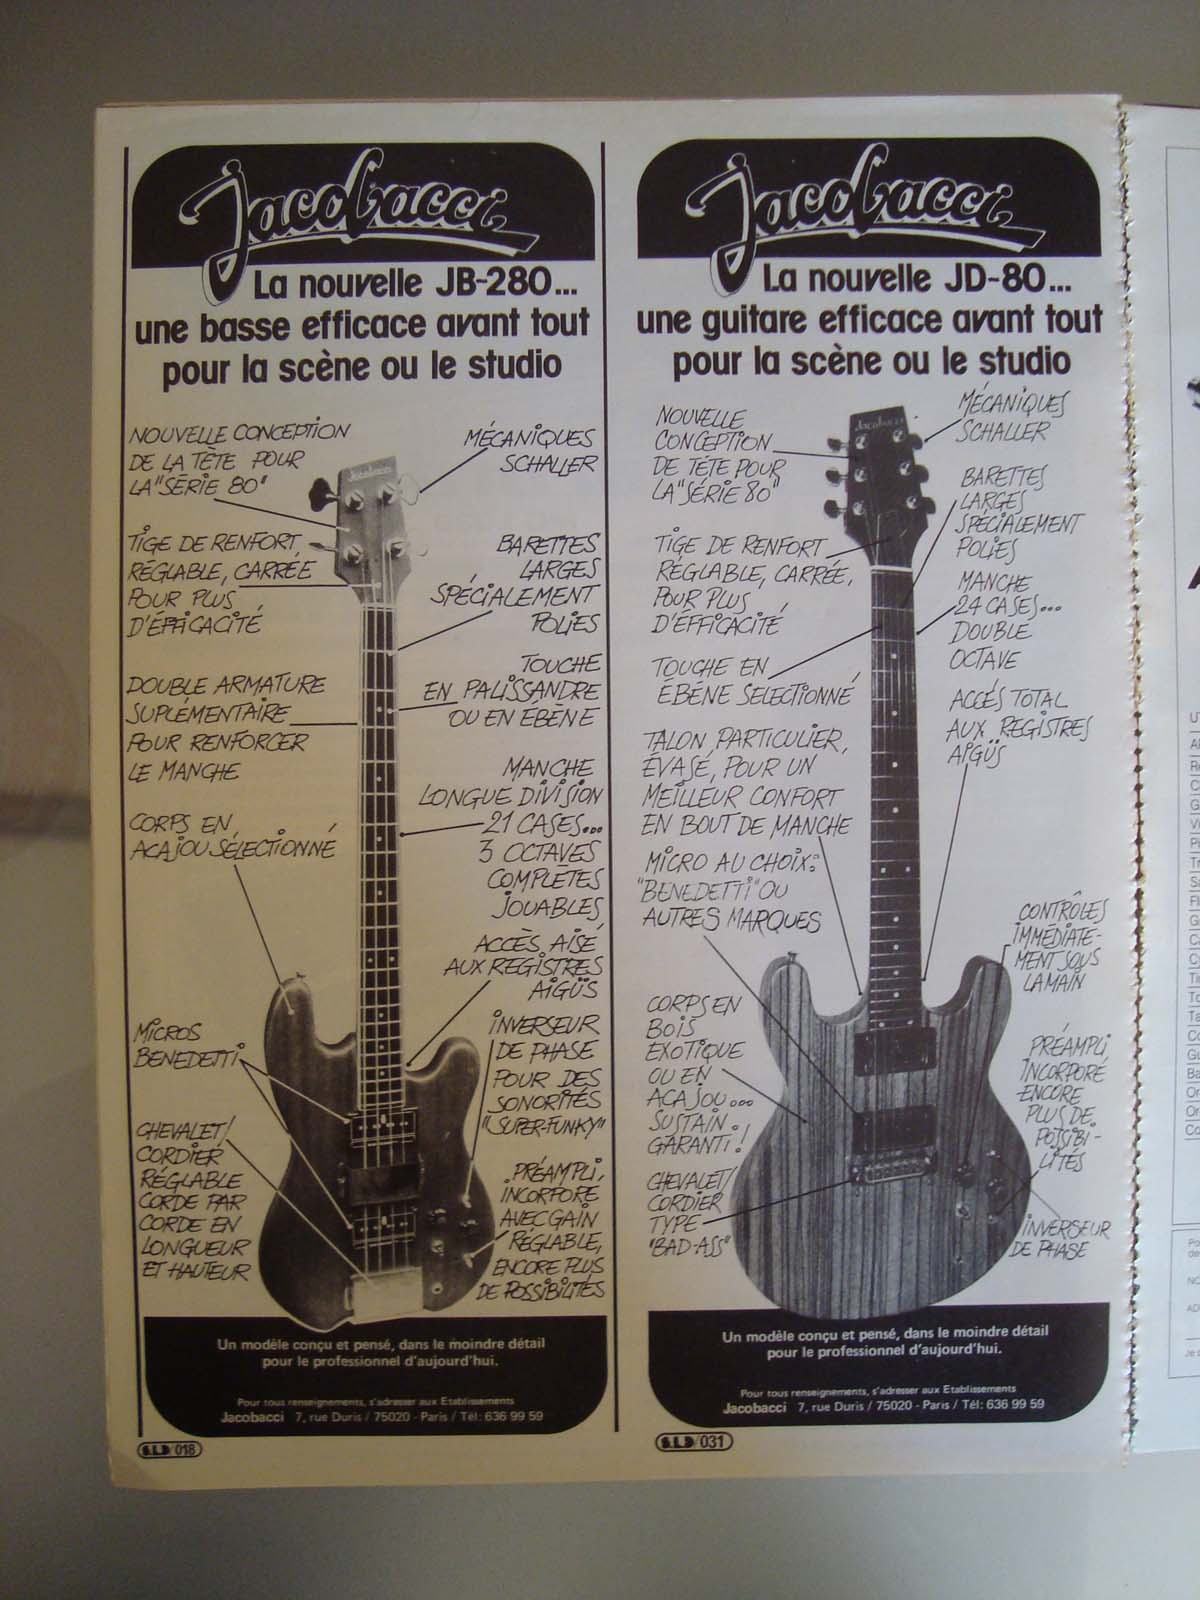 Jacobacci
La nouvelle JB-280...
une basse efficace avant tout
pour la scène ou le studio
NOUVELLE CONCEPTION
DE LA TÊTE POUR
LA "SÉRIE 80"
MÉCANIQUES
SCHALLER
Jacobacci
TIGE DE RENFORT
RÉGLABLE, CARRÉE
POUR PLUS
D'ÉFFICACITÉ
BARETTES
LARGES
SPÉCIALEMENT
POLIES
DOUBLE ARMATURE
SUPLÉMENTAIRE
POUR RENFORCER
LE MANCHE
TOUCHE
EN PALISSANDRE
OU EN ÉBÈNE
MANCHE
LONGUE DIVISION
21 CASES...
3 OCTAVES
COMPLÈTES
JOUABLES
CORPS EN
ACAJOU SÉLECTIONNÉ
ACCÈS AISÉ
AUX REGISTRES
AIGÜS
MICROS
BENEDETTI
INVERSEUR
DE PHASE
POUR DES
SONORITÉS
"SUPER-FUNKY"
CHEVALET/
CORDIER
RÉGLABLE
CORDE PAR
CORDE EN
LONGUEUR
ET HAUTEUR
PRÉAMPLI,
INCORPORÉ
AVEC GAIN
RÉGLABLE,
ENCORE PLUS
DE POSSIBILITÉS
Un modèle conçu et pensé, dans le moindre détail
pour le professionnel d'aujourd'hui.
Pour tous renseignements, s'adresser aux Etablissements
Jacobacci 7, rue Duris / 75020 - Paris / Tél: 636 99 59
S.L.D/018
Jacobacci
La nouvelle JD-80...
une guitare efficace avant tout
pour la scène ou le studio
NOUVELLE
CONCEPTION
DE TÊTE POUR
LA "SÉRIE 80"
MÉCANIQUES
SCHALLER
Jacobacci
BARETTES
LARGES
SPÉCIALEMENT
POLIES
TIGE DE RENFORT
RÉGLABLE, CARRÉE,
POUR PLUS
D'ÉFFICACITÉ
MANCHE
24 CASES...
DOUBLE
OCTAVE
TOUCHE EN
ÉBÈNE SELECTIONNÉ
ACCÉS TOTAL
AUX REGISTRES
AIGÜS
TALON PARTICULIER,
ÉVASÉ, POUR UN
MEILLEUR CONFORT
EN BOUT DE MANCHE
MICRO AU CHOIX:
"BENEDETTI" OU
AUTRES MARQUES
CONTRÔLES
IMMÉDIATE-
MENT SOUS
LA MAIN
CORPS EN
BOIS
EXOTIQUE
OU EN
ACAJOU...
SUSTAIN
GARANTI!
PRÉAMPLI,
INCORPORÉ
ENCORE
PLUS DE
POSSIBI-
LITÉS
CHEVALET/
CORDIER
TYPE
"BAD-ASS"
INVERSEUR
DE PHASE
Un modèle conçu et pensé, dans le moindre détail
pour le professionnel d'aujourd'hui.
Pour tous renseignements, s'adresser aux Etablissements
Jacobacci 7, rue Duris / 75020 - Paris / Tél: 636 99 59
S.L.D/031